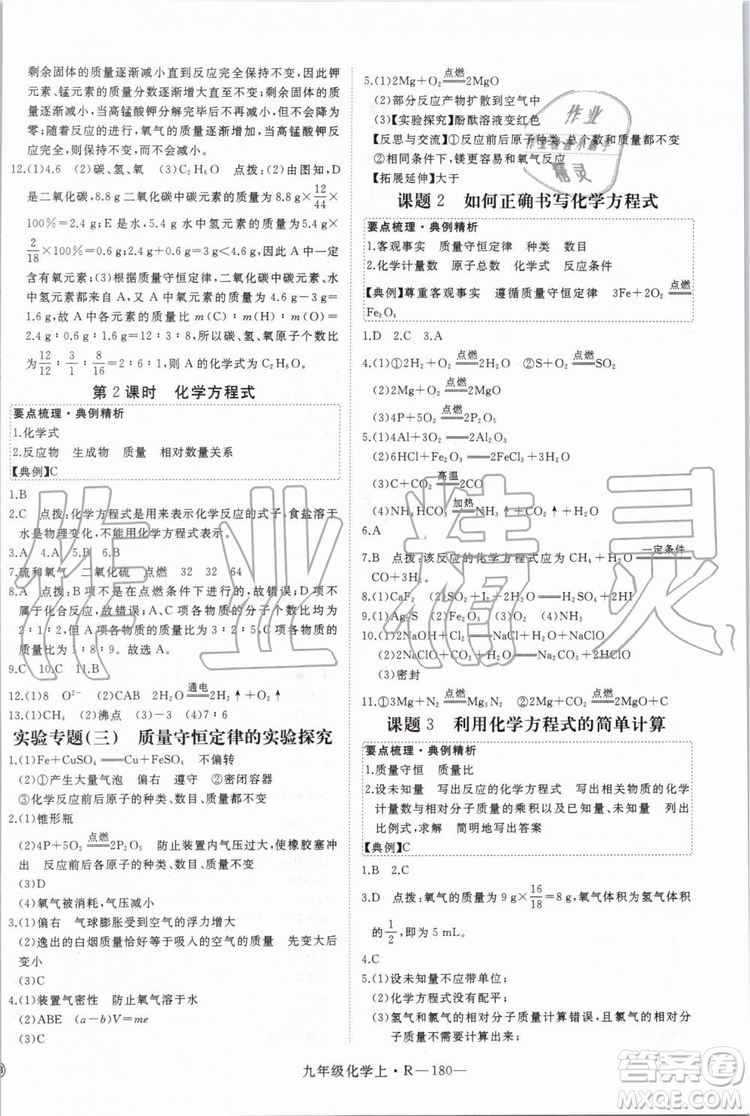 剩余固体的质量逐渐减小直到反应完全保持不变,因此钾
元素、锰元素的质量逐渐增大,当高锰酸钾反应完全保持
不变。随着反应的进行,剩余固体的质量在减小,氧元素质
量逐渐减小,当高锰酸钾分解完毕后不再减小,但不会为
零;随着反应的进行,氧气的质量逐渐增大,当高锰酸钾反
应完全保持不变。
12.(1)4.6 (2)碳、氢、氧 点拨:(2)由图知,
8.8 g二氧化碳中,碳元素的质量=8.8 g×12/44
×100%=2.4 g;5.4 g水中氢元素的质量=5.4 g×
2/18×100%=0.6 g<4.6 g-2.4 g,故该物质中一定
含有氧元素。(3)根据质量守恒定律,二氧化碳中碳元素、
水中氢元素的质量等于该物质中碳元素和氢元素的质量,
4.6 g该物质中氧元素的质量=4.6 g-2.4 g-0.6 g=
1.6 g。碳、氢、氧元素的质量比m(C)∶m(H)∶m(O)=
2.4 g∶0.6 g∶1.6 g=12∶3∶8,碳、氢、氧原子的个数比为
12/12∶3/1∶8/16=2∶6∶1,所以该物质的化学式为C₂H₆O。
第2课时 化学方程式
要点梳理·典例精析
1.化学式
2.反应物 生成物 质量 相对数量关系
【典例】C
1.B
2.C 点拨:化学方程式是用来表示化学反应的式子,食盐溶于
水是物理变化,不能用化学方程式表示。
3.A 4.A 5.B 6.B
7.硫和氧气 二氧化硫 点燃 32 32 64
8.A 点拨:B项不是在点燃条件下进行的,故错误;D项不
属于化合反应,故错误;A、C项各物质的分子个数比均为
2∶1∶2,但A项各物质的质量比为3∶2∶5,C项各物质的
质量比为1∶8∶9。故选A。
9.C 10.C 11.B
12.(1)8 O²⁻ (2)CAB 2H₂O 通电 2H₂↑+O₂↑
13.(1)CH₄ (2)沸点 (3)-4 (4)7∶6
实验专题(三) 质量守恒定律的实验探究
1.(1)Fe+CuSO₄══Cu+FeSO₄ 不偏转
(2)①产生大量气泡 偏右 遵守 ②密闭容器
③化学反应前后原子的种类、数目、质量不变
2.(1)锥形瓶
(2)4P+5O₂ 点燃 2P₂O₅ 防止装置内气压过大,使橡胶塞冲
出 反应前后各原子的种类、数目、质量不变
(3)D
(4)氧气被消耗,气压减小
3.(1)偏右 气球膨胀受到空气的浮力增大
(2)逸出的白烟质量恰好等于吸入的空气的质量 先变大后
变小
4.(1)装置气密性 防止氧气溶解于水
(2)ABE (a-b)V=me
(3)C
5.(1)2Mg+O₂ 点燃 2MgO
(2)部分反应产物扩散到空气中
(3)【实验探究】酚酞溶液变红色
【反思与交流】①反应前后原子种类、总个数和质量都不变
②相同条件下,镁与氧气更易反应
【拓展延伸】大于
课题2 如何正确书写化学方程式
要点梳理·典例精析
1.客观事实 质量守恒定律 种类 数目
2.化学计量数 原子总数 化学式 反应条件
【典例】尊重客观事实 遵循质量守恒定律 3Fe+2O₂ 点燃
Fe₃O₄
1.D 2.C 3.A
4.(1)①2H₂+O₂ 点燃 2H₂O ②S+O₂ 点燃 SO₂
(2)2Mg+O₂ 点燃 2MgO
(3)4P+5O₂ 点燃 2P₂O₅
5.(1)4Al+3O₂══2Al₂O₃
(2)6HCl+Fe₂O₃══2FeCl₃+3H₂O
(3)C+CO₂ 高温 2CO
(4)NH₄HCO₃ 加热 NH₃↑+CO₂↑+H₂O
6.A
7.B 点拨:该反应的化学方程式为CH₄+H₂O 一定条件
CO+3H₂。
8.(1)CaF₂ (2)SO₂+I₂+2H₂O (3)
9.(1)A (2)Fe₂O₃ (3)O₂ (4)NH₃
10.(1)2NaOH+Cl₂══NaCl+NaClO+H₂O
(2)CO₂+2NaClO+H₂O══Na₂CO₃+2HClO
(3)密封
11.①3Mg+N₂ 点燃 Mg₃N₂ ②2Mg+CO₂ 点燃 2MgO+C
课题3 利用化学方程式的简单计算
要点梳理·典例精析
1.质量守恒 质量比
2.设未知量 写出反应的化学方程式 写出相关物质的化学
计量数与相对分子质量的乘积以及已知量、未知量 列出
比例式,求解 简明地写出答案
【典例】C
1.B 2.C
3.D 点拨:氧气的质量为9 g×16/18=8 g,氧气体积为氢气体积
的1/2,即为5 mL。
4.C
5.(1)设未知量不应带单位;
(2)化学方程式没有配平;
(3)氢气和氯气的相对分子质量计算错误,而且应用相对分
子质量不是质量列式计算。
九年级化学上·R—180—
作业精灵
答案圈
MXQE.COM